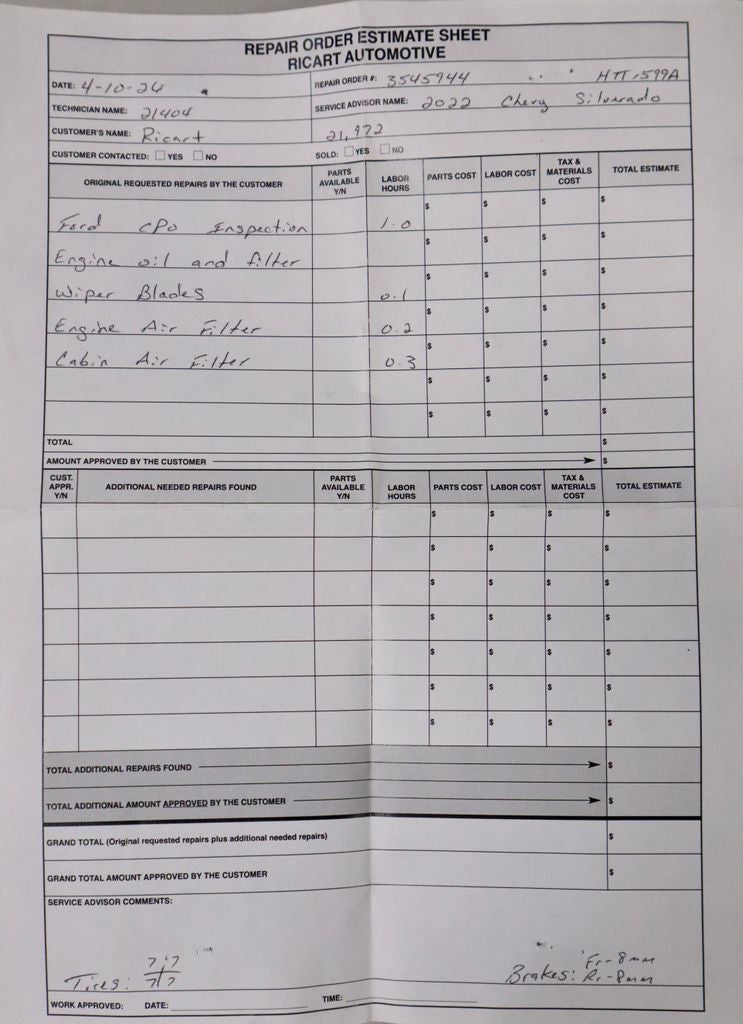 REPAIR ORDER ESTIMATE SHEET
RICART AUTOMOTIVE
DATE: 4-10-24 REPAIR ORDER #: 3545944 HTT1599A
TECHNICIAN NAME: 21404 SERVICE ADVISOR NAME: 2022 Chevy Silverado
CUSTOMER'S NAME: Ricart 21,972
CUSTOMER CONTACTED: ☐ YES ☐ NO SOLD: ☐ YES ☐ NO
ORIGINAL REQUESTED REPAIRS BY THE CUSTOMER PARTS AVAILABLE Y/N LABOR HOURS PARTS COST LABOR COST TAX & MATERIALS COST TOTAL ESTIMATE
Ford CPO Inspection 1.0 $ $ $ $
Engine oil and filter $ $ $ $
Wiper Blades 0.1 $ $ $ $
Engine Air Filter 0.2 $ $ $ $
Cabin Air Filter 0.3 $ $ $ $
$ $ $ $
$ $ $ $
TOTAL $
AMOUNT APPROVED BY THE CUSTOMER $
CUST. APPR. Y/N ADDITIONAL NEEDED REPAIRS FOUND PARTS AVAILABLE Y/N LABOR HOURS PARTS COST LABOR COST TAX & MATERIALS COST TOTAL ESTIMATE
$ $ $ $
$ $ $ $
$ $ $ $
$ $ $ $
$ $ $ $
$ $ $ $
$ $ $ $
TOTAL ADDITIONAL REPAIRS FOUND $
TOTAL ADDITIONAL AMOUNT APPROVED BY THE CUSTOMER $
GRAND TOTAL (Original requested repairs plus additional needed repairs) $
GRAND TOTAL AMOUNT APPROVED BY THE CUSTOMER $
SERVICE ADVISOR COMMENTS:
7 7 Fr-8mm
Tires: 7 7 Brakes: Rr-8mm
WORK APPROVED: DATE: TIME: